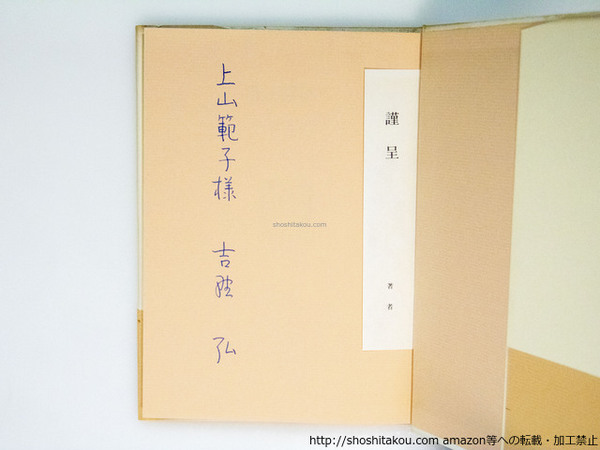 謹呈
著者
上山範子様 吉野 弘
shoshitakou.com
http://shoshitakou.com amazon等への転載・加工禁止